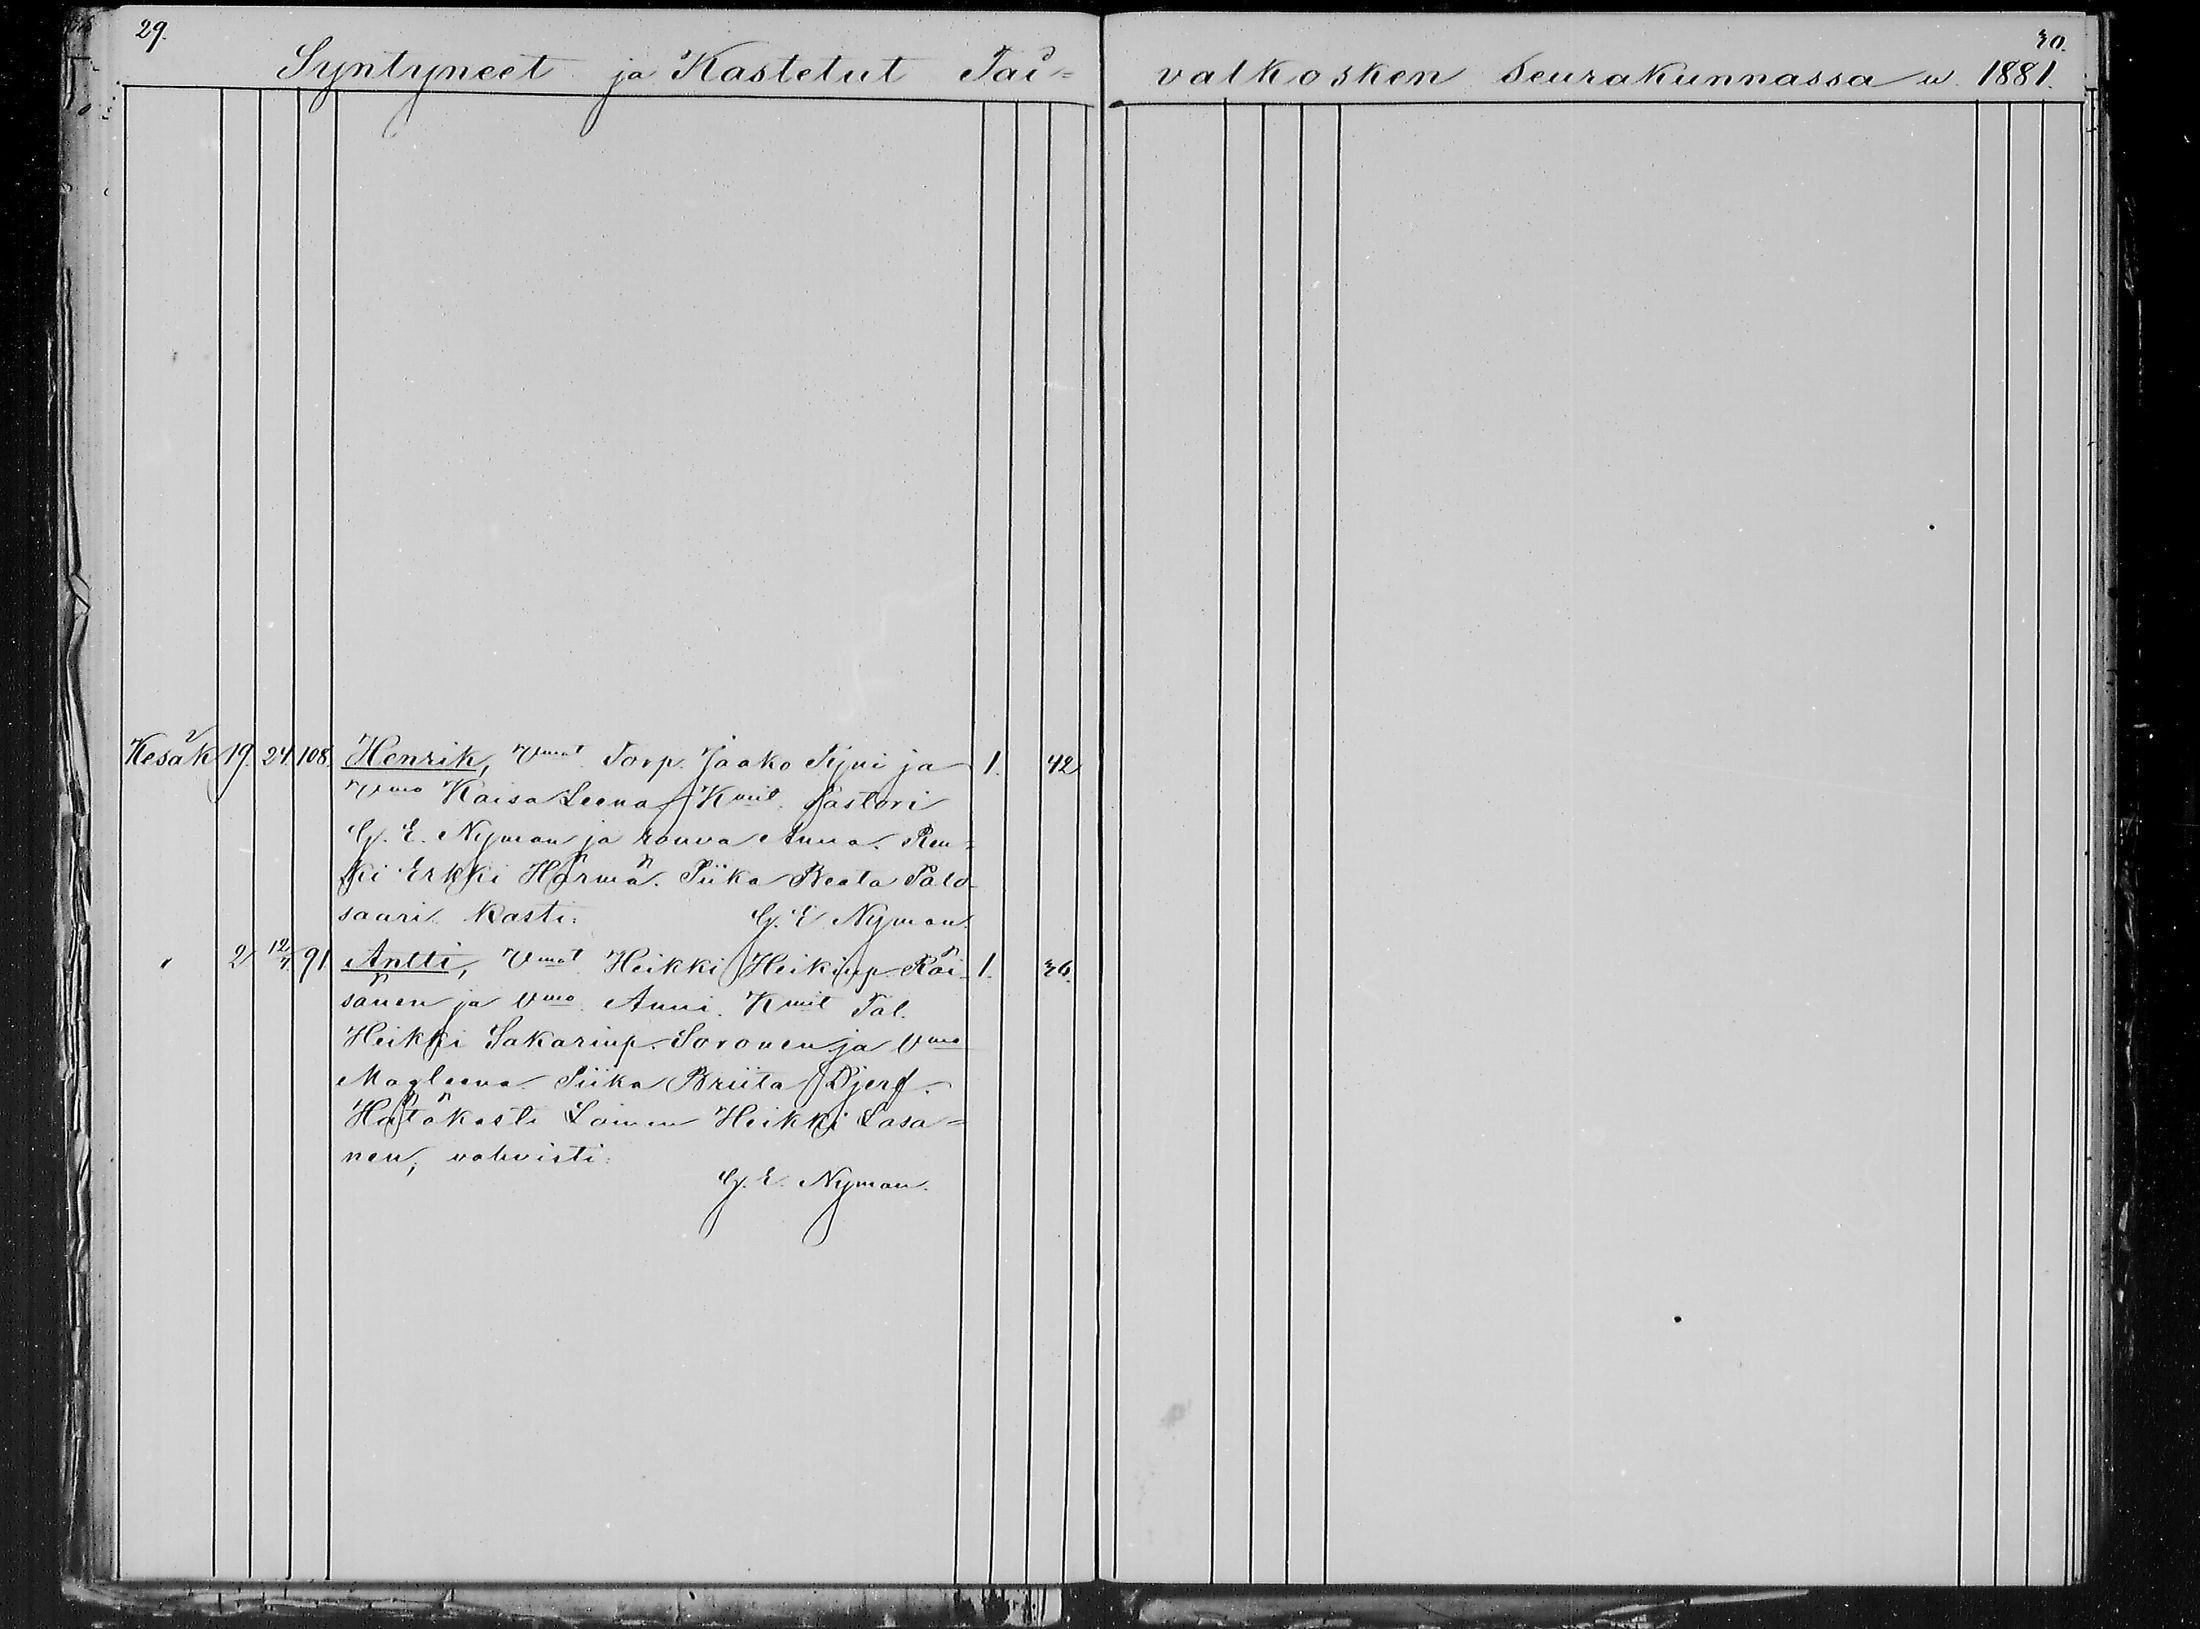 29.
Syntyneet ja Kastetut Tai=
30.
valkosken Seurakunnassa w. 1881.
Kesäk 19. 24. 108. Henrik, Vmat Torp. Jaako Ajni ja 1. 42
Vmo Kaisa Leena. Kmit. Pastori
G. E. Nyman ja rouva Anna. Ren=
ki Erkki Härmä. Piika Beata Palo-
saari. Kasti: G. E. Nyman.
" 2 12/7. 91 Antti, Vmat Heikki Heikinp. Räi- 1. 36.
sänen ja Vmo Anni. Kmit Tal.
Heikki Sakarinp. Soronen ja Vmo
Magleena. Piika Briita Djerf.
Hätäkasti Loinen Heikki Lasa=
nen, vahvisti:
G. E. Nyman.